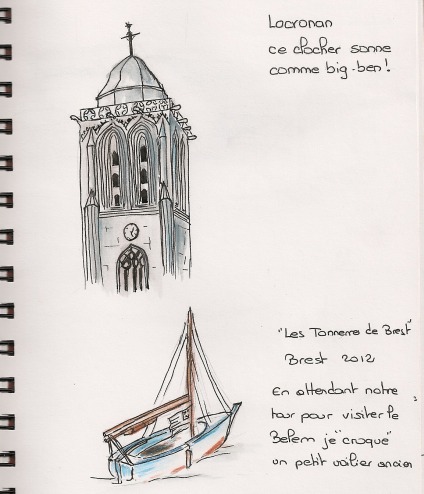 Locronan
ce clocher sonne
comme big-ben!
"Les Tonnerre de Brest"
Brest 2012
En attendant notre
tour pour visiter le
Belem je "croque"
un petit voilier ancien